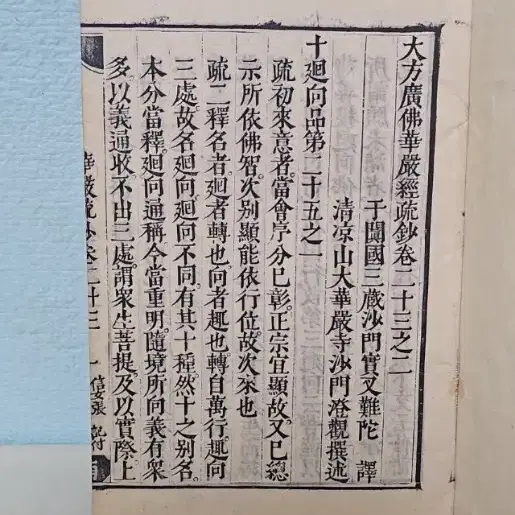 大方廣佛華嚴經疏鈔卷二十三之二
于闐國三藏沙門實叉難陀 譯
清凉山大華嚴寺沙門澄觀撰述
十廻向品第二十五之一
疏初來意者當會序分已彰正宗宜顯故又已總
示所依佛智次別顯能依行位故次來也
疏二釋名者廻者轉也向者趣也轉自萬行趣向
三處故名廻向廻向不同有其十種然十之別名
本分當釋廻向通稱今當重明隨境所向義有衆
多以義通收不出三處謂衆生菩提及以實際上
華嚴疏鈔卷二十三 一